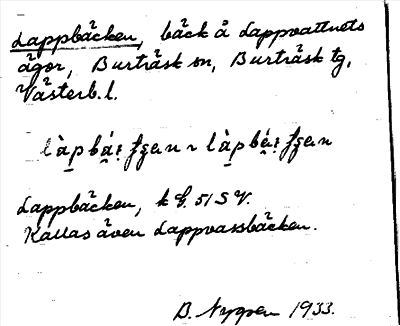 Lappbäcken, bäck å Lappvattnets
ägor, Burträsk sn, Burträsk tg,
Västerb. l.
Lappbäcken, k 51 SV.
Kallas även Lappvassbäcken.
B. Nygren 1933.